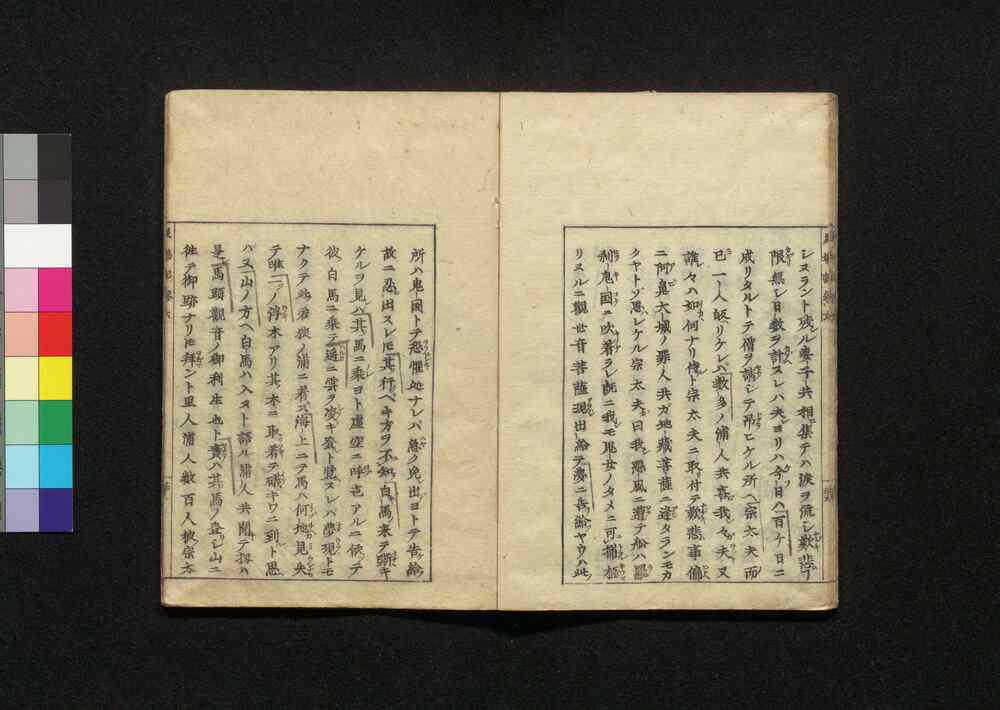 シスラント残ル妻子共相集テハ涙ヲ流シ歎悲
限無シ日数ヲ計スレハ夫ヨリハ今日ハ百ケ日ニ
成リタルトテ僧ヲ請シテ吊ヒケル所ヘ宗太夫而
已一人皈リケレハ数多ノ浦人共喜我々夫又
誰々ハ如何ナリ候ト宗太夫ニ取付テ歎悲事偏
ニ阿鼻大城ノ罪人共ガ地蔵菩薩ニ逢タランモカ
クヤトソ思レケル宗太夫曰我悪風ニ遭テ船ハ羅
刹鬼国ニ吹着ラレ既ニ我モ鬼女ノタメニ可捕
リスルニ觀世音菩薩現出給テ夢ニ告給ヤウハ此
所ハ鬼国トテ恐懼処ナレバ急ク免出ヨトテ告給
故ニ忍出スレ𪜈其行ベキ方ヲ不知白馬来テ嘶キ
ケルヲ見ハ其馬ニ乗ヨト虚空ニ呼声アルニ依テ
彼白馬ニ乗テ遥ニ雲ヲ凌キ翌ト覚スレバ夢現トモ
ナクテ若狭ノ浦ニ着ス海上ニテ馬ハ何地見失
テ唯一ノ浮木アリ其木ニ取着テ礒キワニ到ト思
バ又山ノ方ヘ白馬ハ入ヌト語ル浦人共聞テ扨ハ
是馬頭觀音ノ御利生也ト貴ハ其馬ノ登シ山ニ
徃テ御跡ナリ𪜈拜ント里人浦人数百人彼宗太